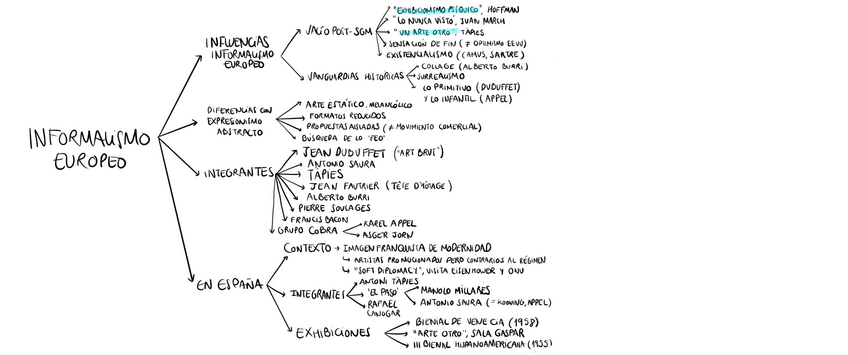 INFORMALISMO
EUROPEO
INFLUENCIAS
INFORMALISMO
EUROPEO
VACÍO POST-SGM
"EXHIBICIONISMO PSÍQUICO", HOFFMAN
"LO NUNCA VISTO", JUAN MARCH
"UN ARTE OTRO", TÀPIES
SENSACIÓN DE FIN (≠ OPTIMISMO EEUU)
EXISTENCIALISMO (CAMUS, SARTRE)
VANGUARDIAS HISTÓRICAS
COLLAGE (ALBERTO BURRI)
SURREALISMO
LO PRIMITIVO (DUBUFFET)
Y LO INFANTIL (APPEL)
DIFERENCIAS CON
EXPRESIONISMO
ABSTRACTO
ARTE ESTÁTICO, MELANCÓLICO
FORMATOS REDUCIDOS
PROPUESTAS AISLADAS (≠ MOVIMIENTO COMERCIAL)
BÚSQUEDA DE LO "FEO"
INTEGRANTES
JEAN DUBUFFET ("ART BRUT")
ANTONIO SAURA
TÀPIES
JEAN FAUTRIER (TÊTE D'OTAGE)
ALBERTO BURRI
PIERRE SOULAGES
FRANCIS BACON
GRUPO COBRA
KAREL APPEL
ASGER JORN
EN ESPAÑA
CONTEXTO → IMAGEN FRANQUISTA DE MODERNIDAD
↳ ARTISTAS PROMOCIONADOS PERO CONTRARIOS AL RÉGIMEN
↳ "SOFT DIPLOMACY", VISITA EISENHOWER Y ONU
INTEGRANTES
ANTONI TÀPIES
"EL PASO"
MANOLO MILLARES
ANTONIO SAURA (= KOONING, APPEL)
RAFAEL
CANOGAR
EXHIBICIONES
BIENAL DE VENECIA (1958)
"ARTE OTRO", SALA GASPAR
III BIENAL HISPANOAMERICANA (1955)